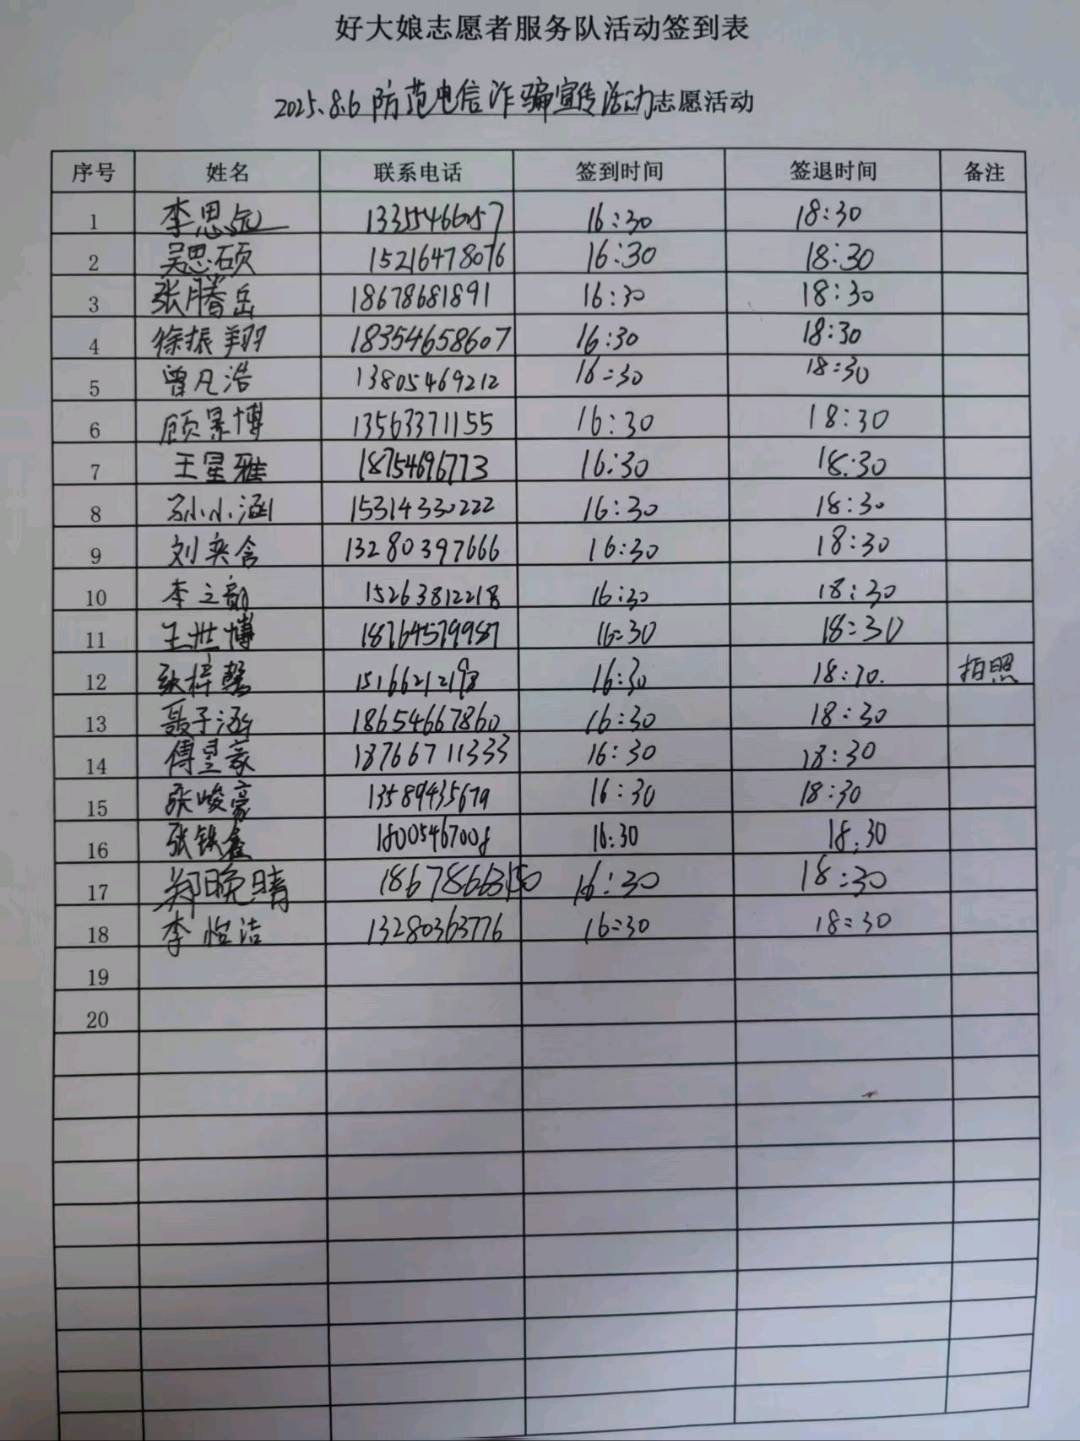 好大娘志愿者服务队活动签到表
2025.8.6 防范电信诈骗宣传活动志愿活动
序号 姓名 联系电话 签到时间 签退时间 备注
1 李思远 13355466057 16:30 18:30
2 吴思硕 15216478076 16:30 18:30
3 张腾岳 18678681891 16:30 18:30
4 徐振翔 18354658607 16:30 18:30
5 曾凡浩 13805469212 16:30 18:30
6 顾景博 13563371155 16:30 18:30
7 王星雅 18754696773 16:30 18:30
8 孙小涵 15314330222 16:30 18:30
9 刘奕含 13280397666 16:30 18:30
10 李之韵 15263812218 16:30 18:30
11 王世博 18764579987 16:30 18:30
12 张梓馨 16:30 18:30. 拍照
13 聂子涵 18654667860 16:30 18:30
14 傅昱豪 18766711333 16:30 18:30
15 张峻豪 13589435679 16:30 18:30
16 张铁鑫 18005467008 16:30 18:30
17 郑晚晴 18678663150 16:30 18:30
18 李怡洁 13280363776 16:30 18:30
19
20